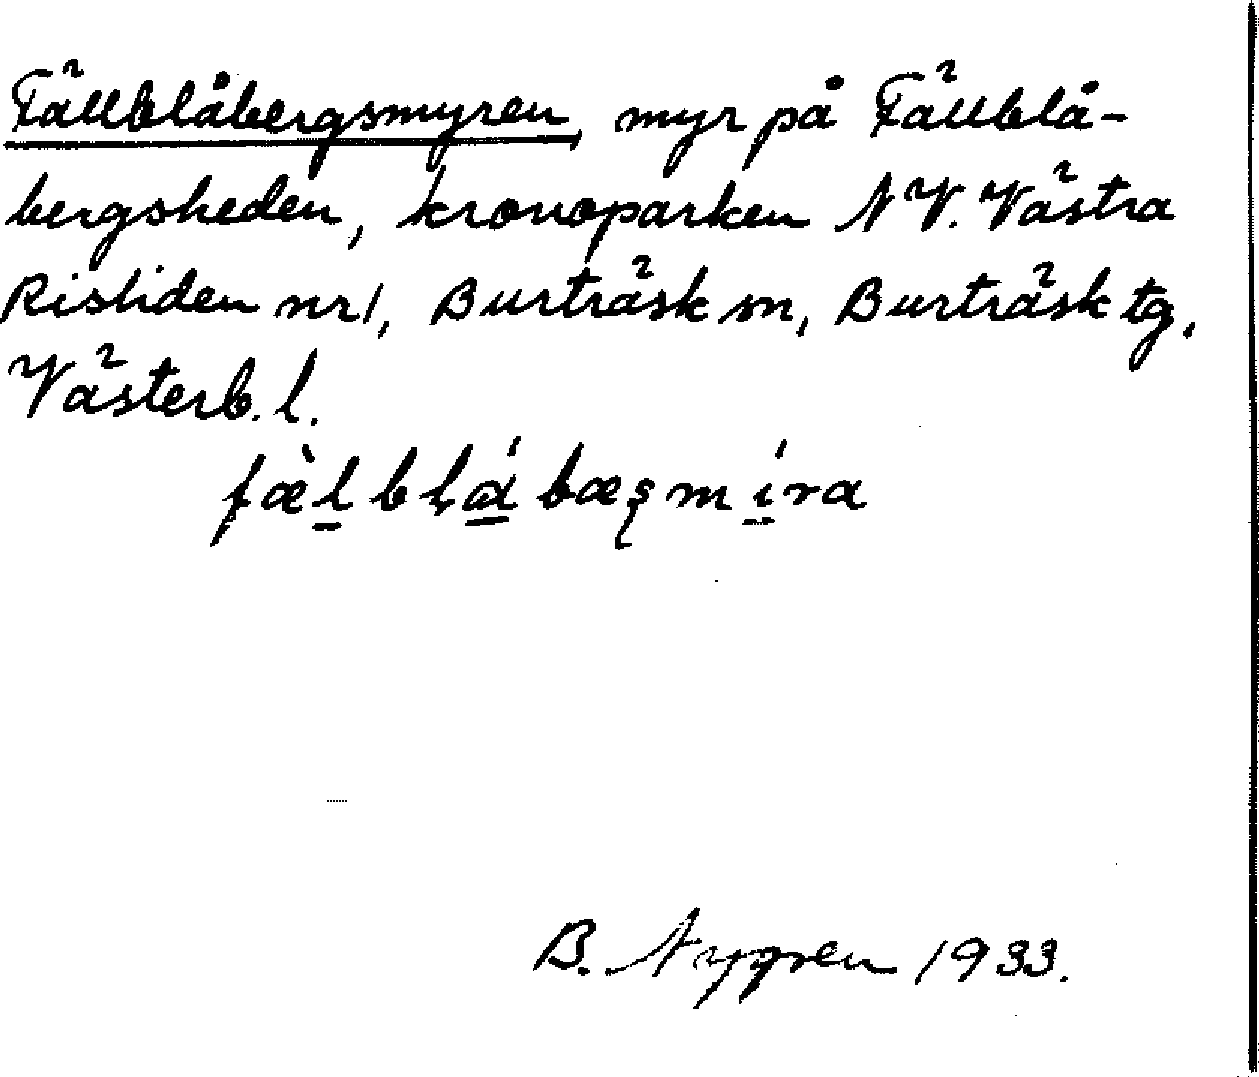 Fällblåbergsmyren, myr på Fällblå-
bergsheden, kronoparken NV. Västra
Risliden nr 1, Burträsk sn, Burträsk tg,
Västerb. l.
fæ̀l̲ blɑ̲́ bæʂmí̲ra
B. Nygren 1933.